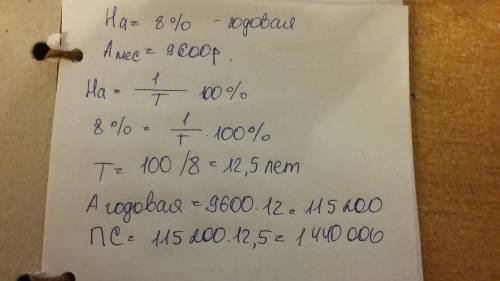 На = 8% - годовая
Амес = 9600р.
На = 1/T · 100%
8% = 1/T · 100%
T = 100/8 = 12,5 лет
Агодовая = 9600·12 = 115200
ПС = 115200·12,5 = 1440000